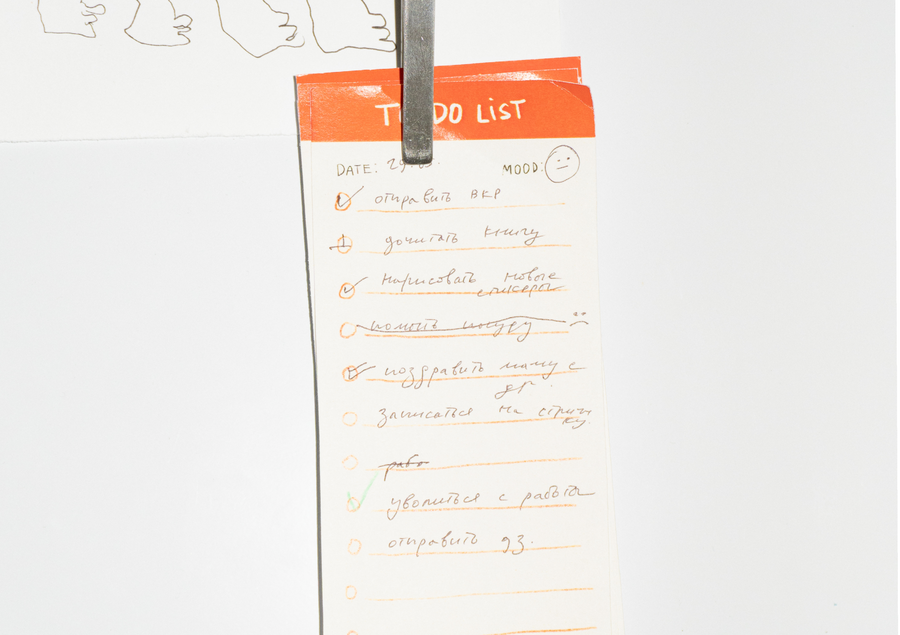 TO DO LIST
DATE: 29.05. MOOD:
отправить ВКР
дочитать книгу
нарисовать новые
стикеры
помыть посуду
поздравить маму с
др.
записаться на стриж
ку.
рабо
уволиться с работы
отправить дз.